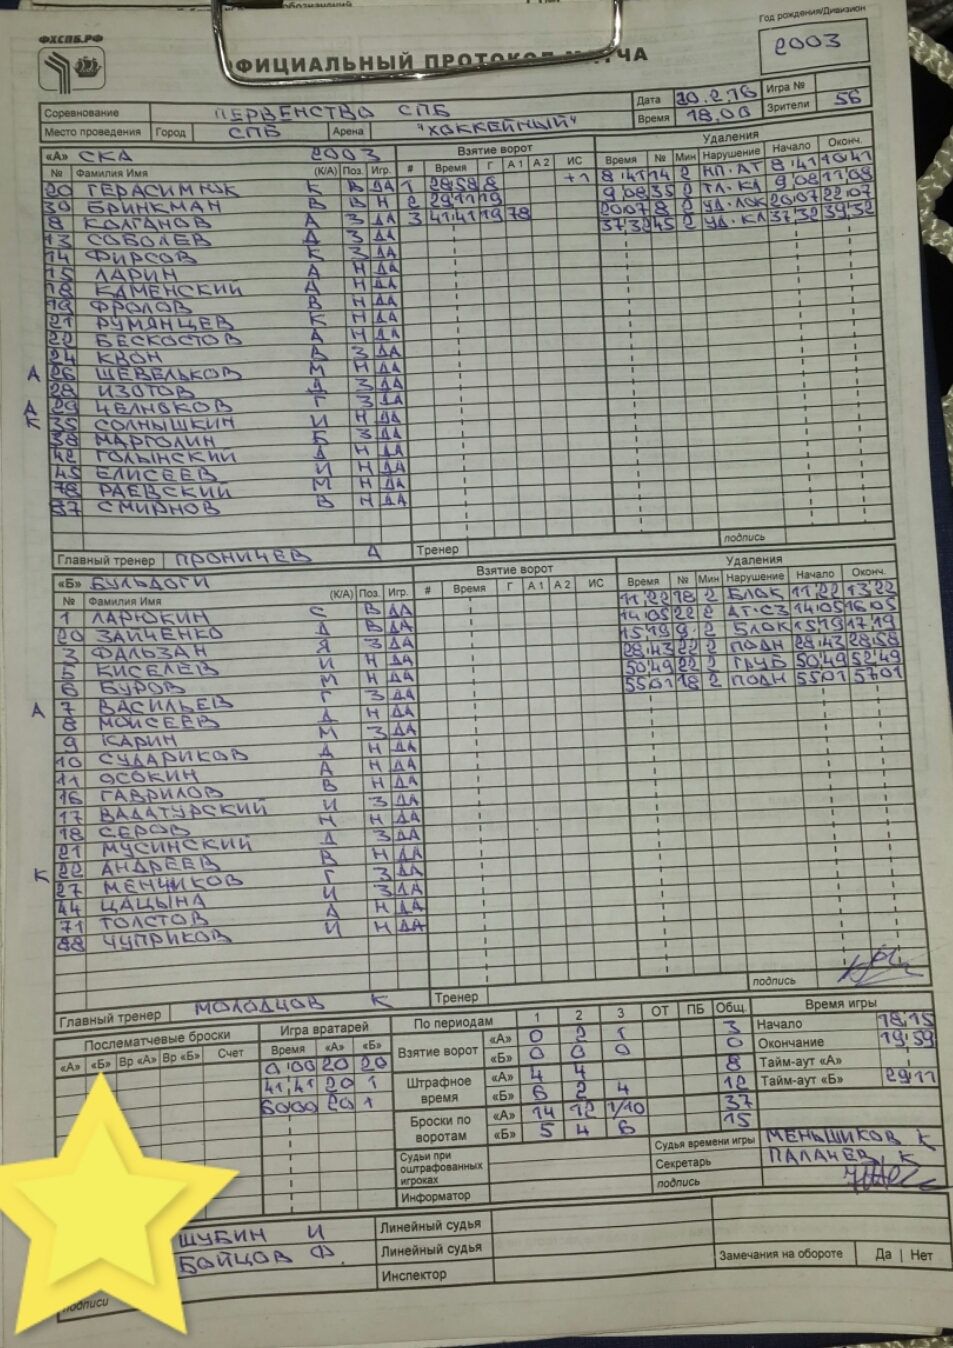 Год рождения/Дивизион
ФХСПБ.РФ
2003
ОФИЦИАЛЬНЫЙ ПРОТОКОЛ МАТЧА
Соревнование ПЕРВЕНСТВО СПБ Дата 10.2.18 Игра №
Место проведения Город СПБ Арена "ХОККЕЙНЫЙ" Время 18,00 Зрители 56
«А» СКА 2003 Взятие ворот Удаления
№ Фамилия Имя (К/А) Поз. Игр. # Время Г А 1 А 2 ИС Время № Мин Нарушение Начало Оконч.
20 ГЕРАСИМЮК К В ДА 1 28:58 8 +1 8:41 14 2 НП-АТ 8:41 10:41
30 БРИНКМАН В В Н 2 29:11 19 9:08 35 2 ТЛ-КЛ 9:08 11:08
8 КОЛГАНОВ А З ДА 3 41:41 19 78 20:07 8 2 УД-ЛОК 20:07 22:07
13 СОБОЛЕВ Д З ДА 37:32 45 2 УД-КЛ 37:32 39:32
14 ФИРСОВ К З ДА
15 ЛАРИН А Н ДА
18 КАМЕНСКИЙ А Н ДА
19 ФРОЛОВ В Н ДА
21 РУМЯНЦЕВ К Н ДА
22 БЕСКОСТОВ А Н ДА
24 КВОН В З ДА
А 26 ШЕВЕЛЬКОВ М Н ДА
28 ИЗОТОВ Д З ДА
А 29 ЧЕЛНОКОВ Г З ДА
К 35 СОЛНЫШКИН И Н ДА
38 МАРГОЛИН Б З ДА
42 ГОЛЫНСКИЙ Д Н ДА
45 ЕЛИСЕЕВ И Н ДА
78 РАЕВСКИЙ М Н ДА
87 СМИРНОВ В Н ДА
подпись
Главный тренер ПРОНИЧЕВ Д Тренер
«Б» БУЛЬДОГИ Взятие ворот Удаления
№ Фамилия Имя (К/А) Поз. Игр. # Время Г А 1 А 2 ИС Время № Мин Нарушение Начало Оконч.
1 ЛАРЮКИН С В ДА 11:22 18 2 БЛОК 11:22 13:22
20 ЗАЙЧЕНКО Д В ДА 14:05 22 2 АТ-СЗ 14:05 16:05
3 ФАЛЬЗАН Я З ДА 15:19 9 2 БЛОК 15:19 17:19
5 КИСЕЛЕВ И Н ДА 28:43 22 2 ПОДН 28:43 28:58
6 БУРОВ М Н ДА 50:49 22 2 ГРУБ 50:49 52:49
А 7 ВАСИЛЬЕВ Г З ДА 55:01 18 2 ПОДН 55:01 57:01
8 МОИСЕЕВ Д Н ДА
9 КАРИН М З ДА
10 СУДАРИКОВ Д Н ДА
11 ОСОКИН А Н ДА
16 ГАВРИЛОВ В Н ДА
17 ВАДАТУРСКИЙ И З ДА
18 СЕРОВ Н Н ДА
21 МУСИНСКИЙ Д З ДА
К 22 АНДРЕЕВ В Н ДА
27 МЕНЧИКОВ Г З ДА
44 ЦАЦЫНА И З ДА
71 ТОЛСТОВ А Н ДА
88 ЧУПРИКОВ И Н ДА
подпись
Главный тренер МОЛОДЦОВ К Тренер
Послематчевые броски Игра вратарей По периодам 1 2 3 ОТ ПБ Общ. Время игры
«А» «Б» Вр «А» Вр «Б» Счет Время «А» «Б»
Взятие ворот «А» 0 2 1 3 Начало 18:15
0:00 20 20 «Б» 0 0 0 0 Окончание 19:59
41:41 20 1 Штрафное время «А» 4 4 8 Тайм-аут «А»
60:00 20 1 «Б» 6 2 4 12 Тайм-аут «Б» 29:11
Броски по воротам «А» 14 12 1/10 37
«Б» 5 4 6 15
Судьи при оштрафованных игроках Судья времени игры МЕНЬШИКОВ К
Секретарь ПАЛАЧЕВ К
Информатор подпись
ШУБИН И Линейный судья
БОЙЦОВ Ф. Линейный судья
Инспектор Замечания на обороте Да | Нет
подписи